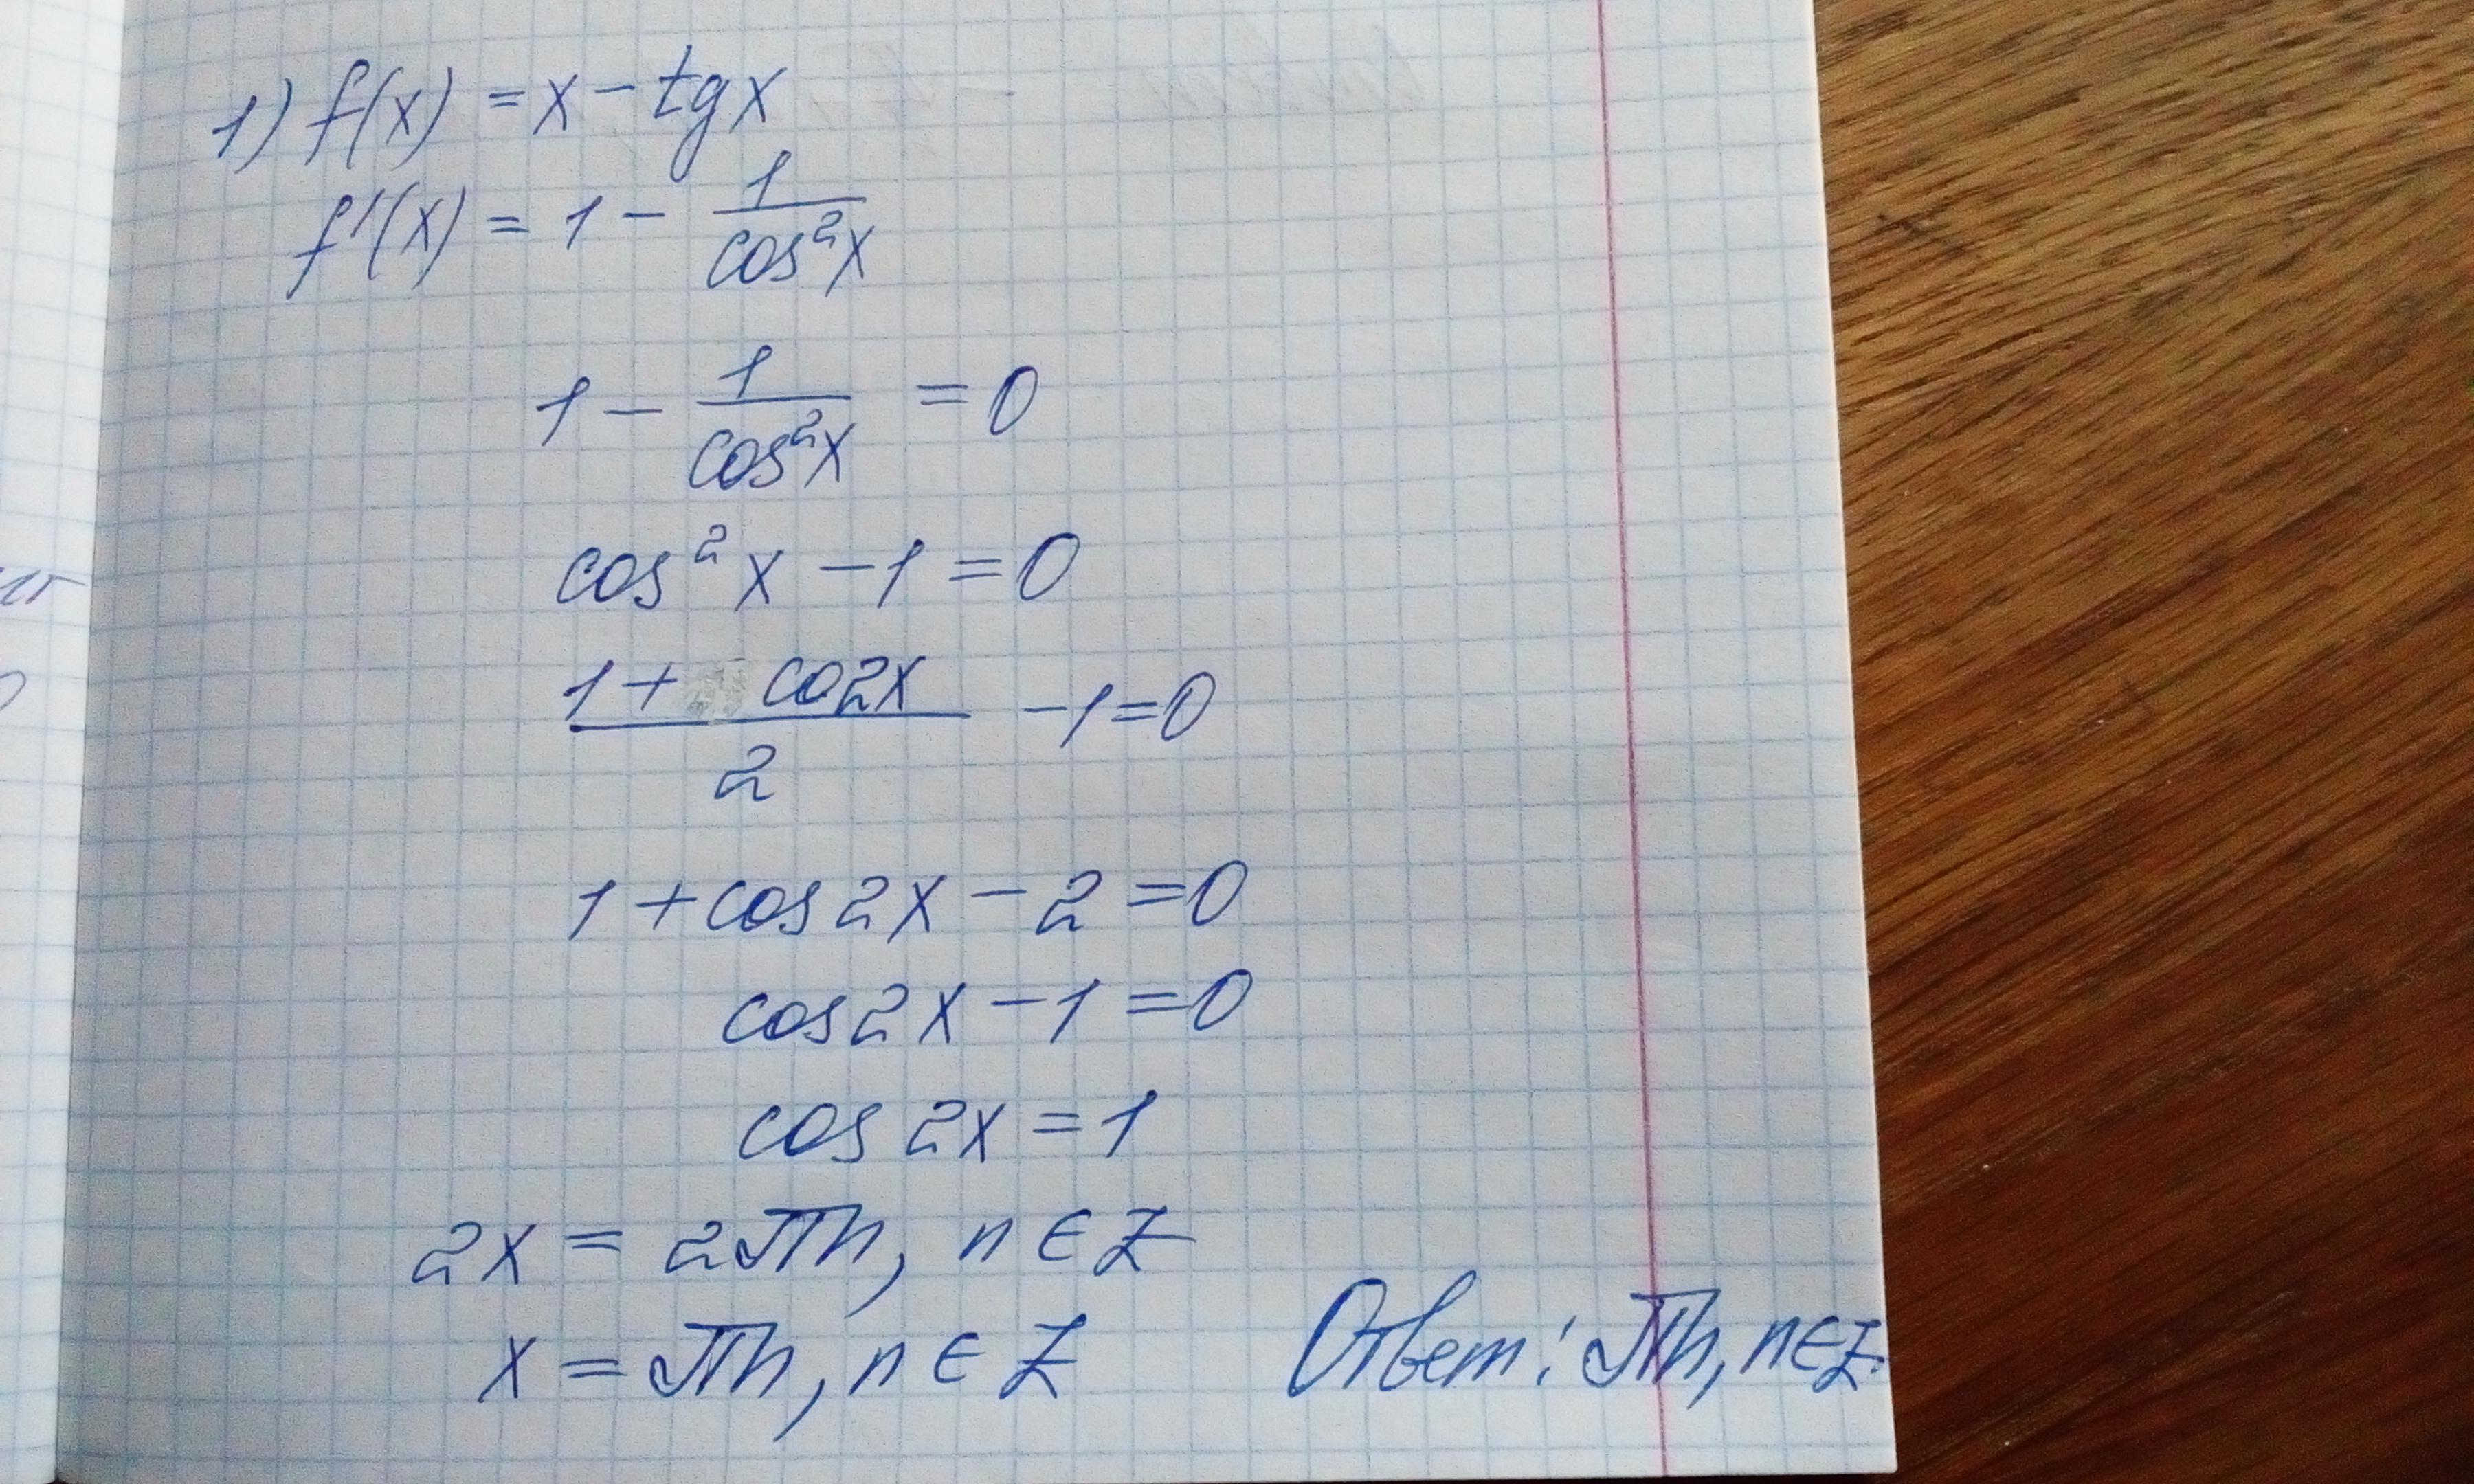 1) f(x) = x - tg x
f'(x) = 1 - 1/cos²x
1 - 1/cos²x = 0
cos²x - 1 = 0
(1 + co2x)/2 - 1 = 0
1 + cos2x - 2 = 0
cos2x - 1 = 0
cos 2x = 1
2x = 2πn, n ∈ Z
x = πn, n ∈ Z
Ответ: πn, n∈Z.